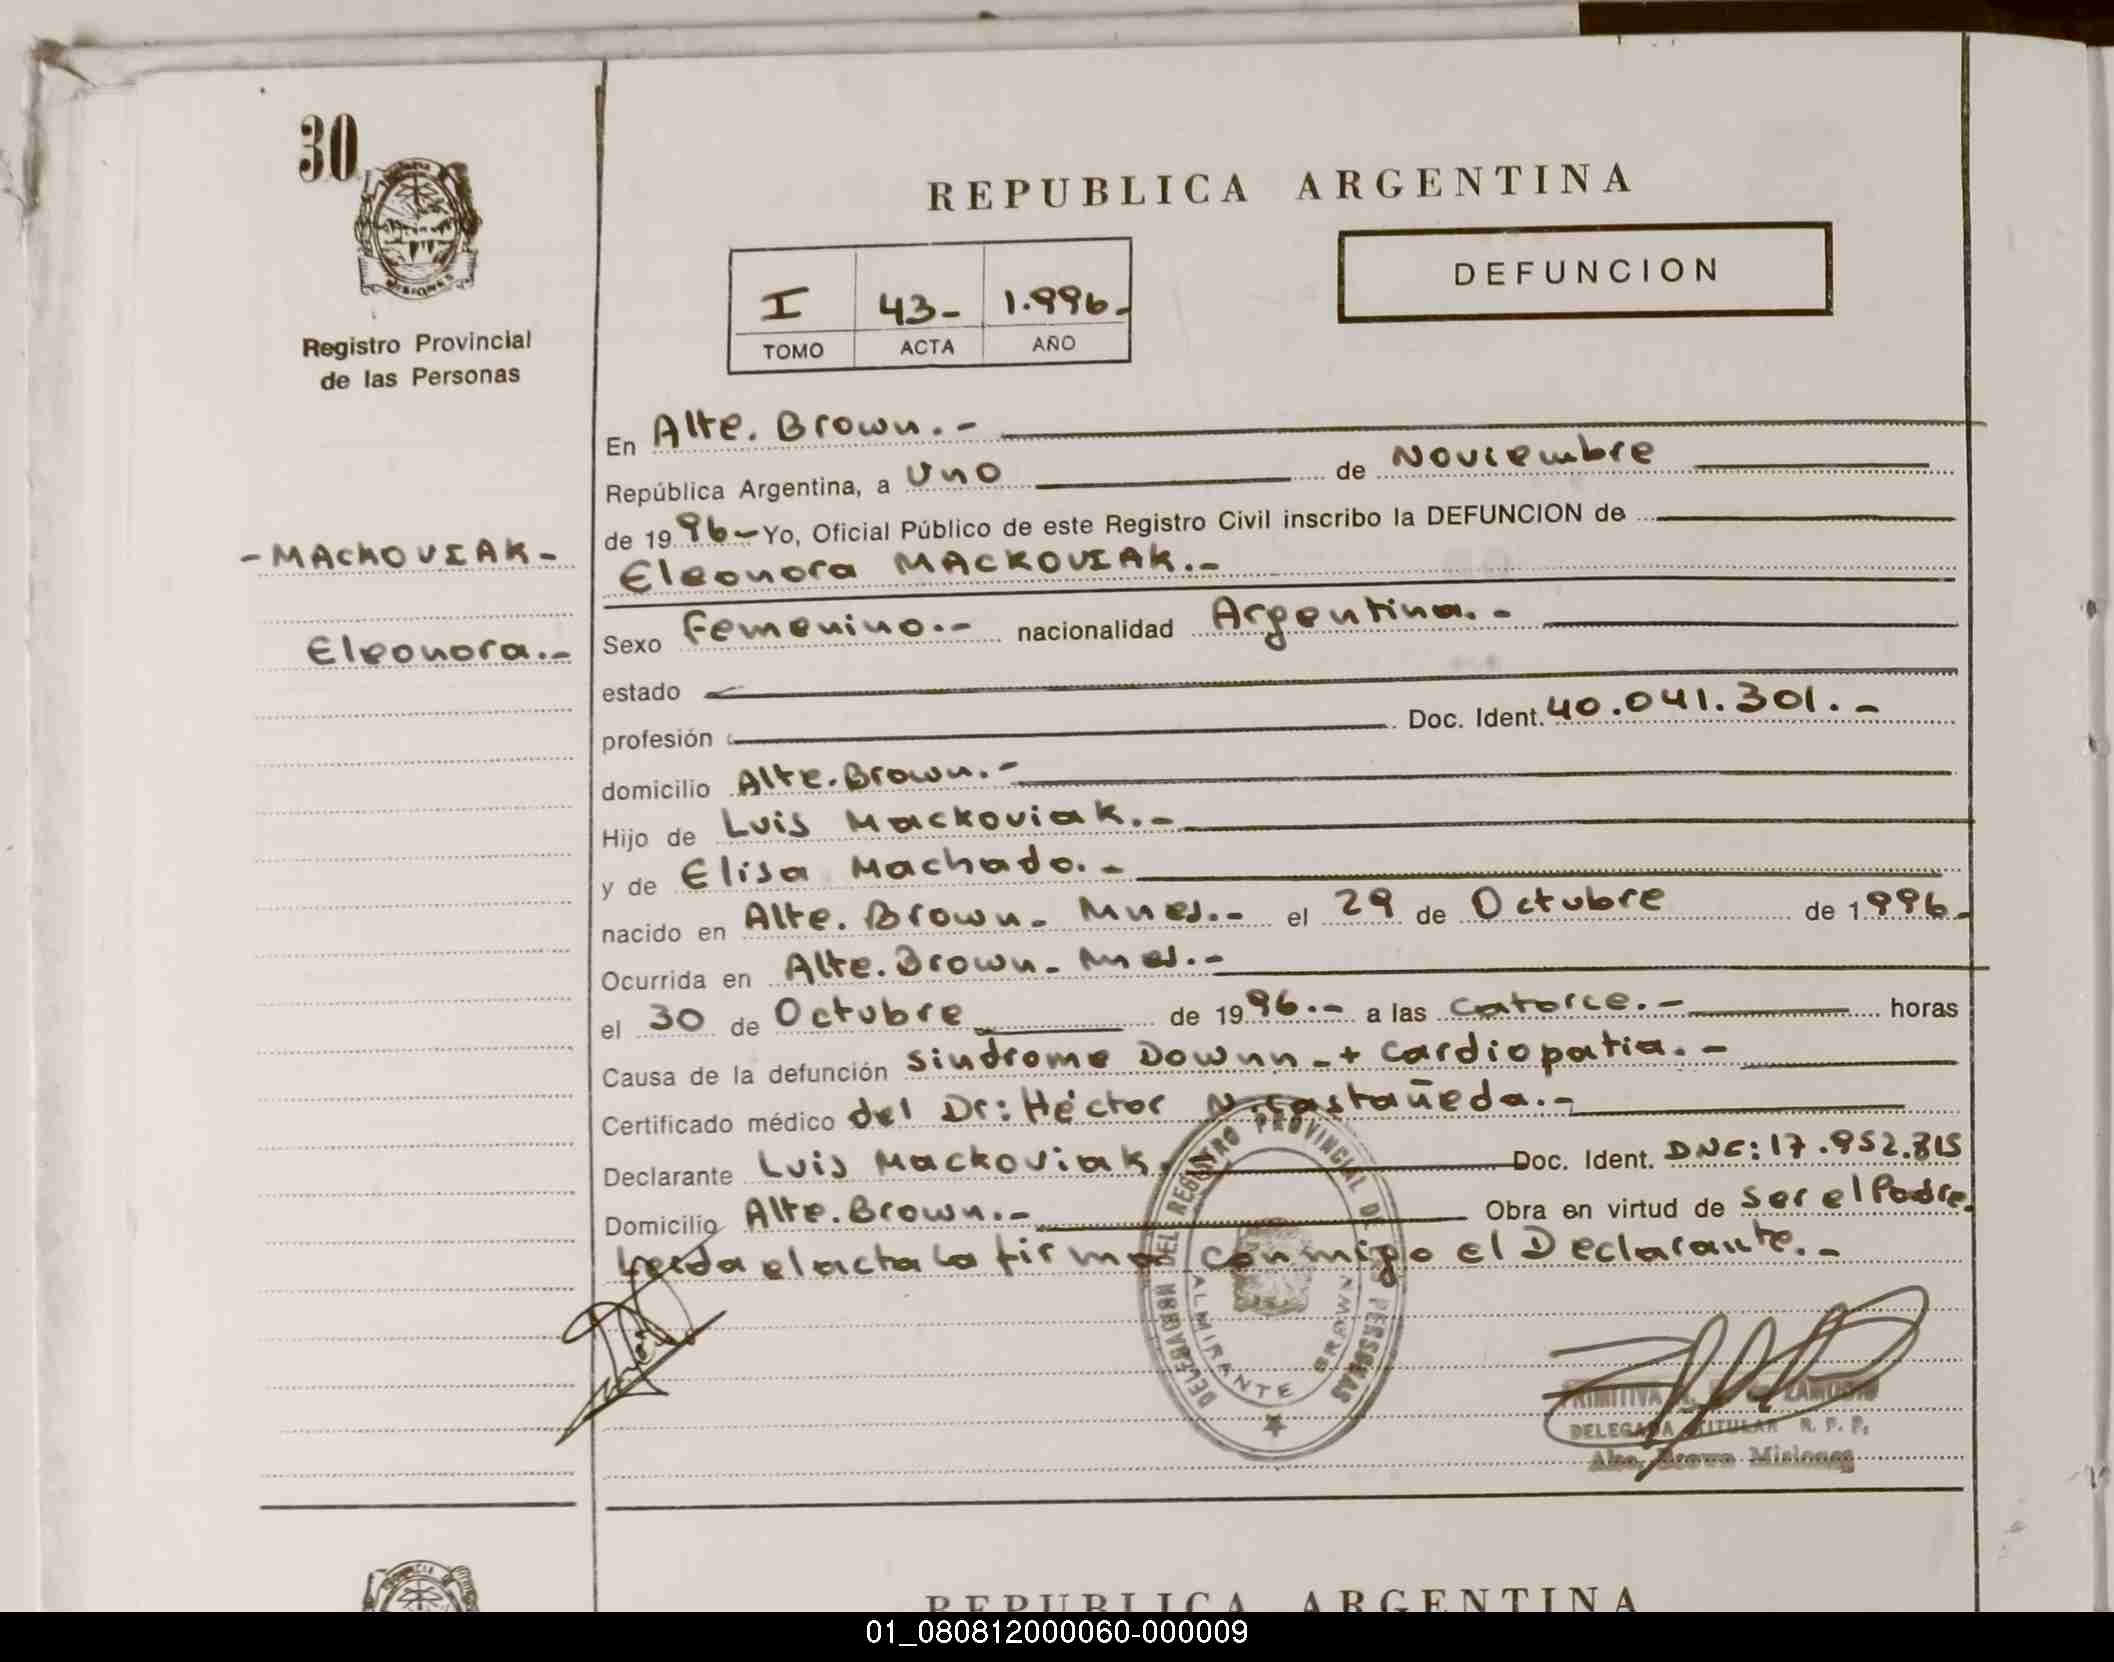 30
MISIONES
Registro Provincial
de las Personas
REPUBLICA ARGENTINA
DEFUNCION
I 43- 1.996.-
TOMO ACTA AÑO
En Alte. Brown.-
República Argentina, a Uno de Noviembre
de 1996- Yo, Oficial Público de este Registro Civil inscribo la DEFUNCION de
-MACKOVIAK-
Eleonora MACKOVIAK.-
Eleonora.-
Sexo Femenino.- nacionalidad Argentina.-
estado
profesión Doc. Ident. 40.041.301.-
domicilio Alte. Brown.-
Hijo de Luis Mackoviak.-
y de Elisa Machado.-
nacido en Alte. Brown- Mnes.- el 29 de Octubre de 1996.-
Ocurrida en Alte. Brown- Mnes.-
el 30 de Octubre de 1996.- a las Catorce.- horas
Causa de la defunción Sindrome Downn-+ Cardiopatia.-
Certificado médico del Dr: Héctor N. Castañeda.-
Declarante Luis Mackoviak. Doc. Ident. DNI: 17.952.815
Domicilio Alte. Brown.- Obra en virtud de ser el Padre.
Leida el acta la firma conmigo el Declarante.-
DELEGACION DEL REGISTRO PROVINCIAL DE LAS PERSONAS
ALMIRANTE BROWN
PRIMITIVA
DELEGADA TITULAR R. P. P.
Alte. Brown Misiones
REPUBLICA ARGENTINA
01_080812000060-000009